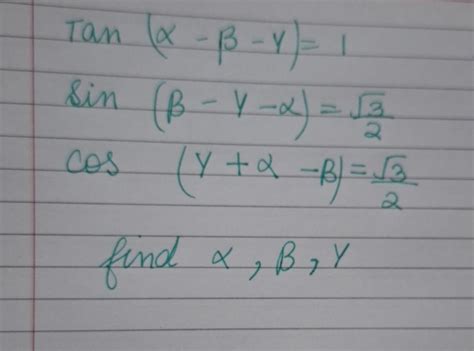 Tan (α - β - γ) = 1
Sin (β - γ - α) = √3/2
cos (γ + α - β) = √3/2
find α, β, γ